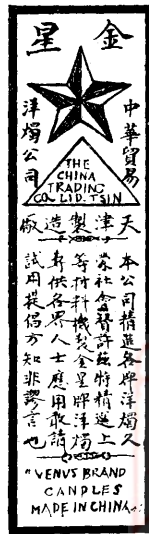 金星
中華貿易
洋燭公司
THE
CHINA
TRADING
CO. LTD. TSIN
天津製造廠
本公司精造各牌洋燭久
蒙社會贊許茲特精選上
等材料機製金星牌洋燭
專供各界人士應用敢請
試用提倡方知非謬言也
"VENUS BRAND
CANDLES
MADE IN CHINA."